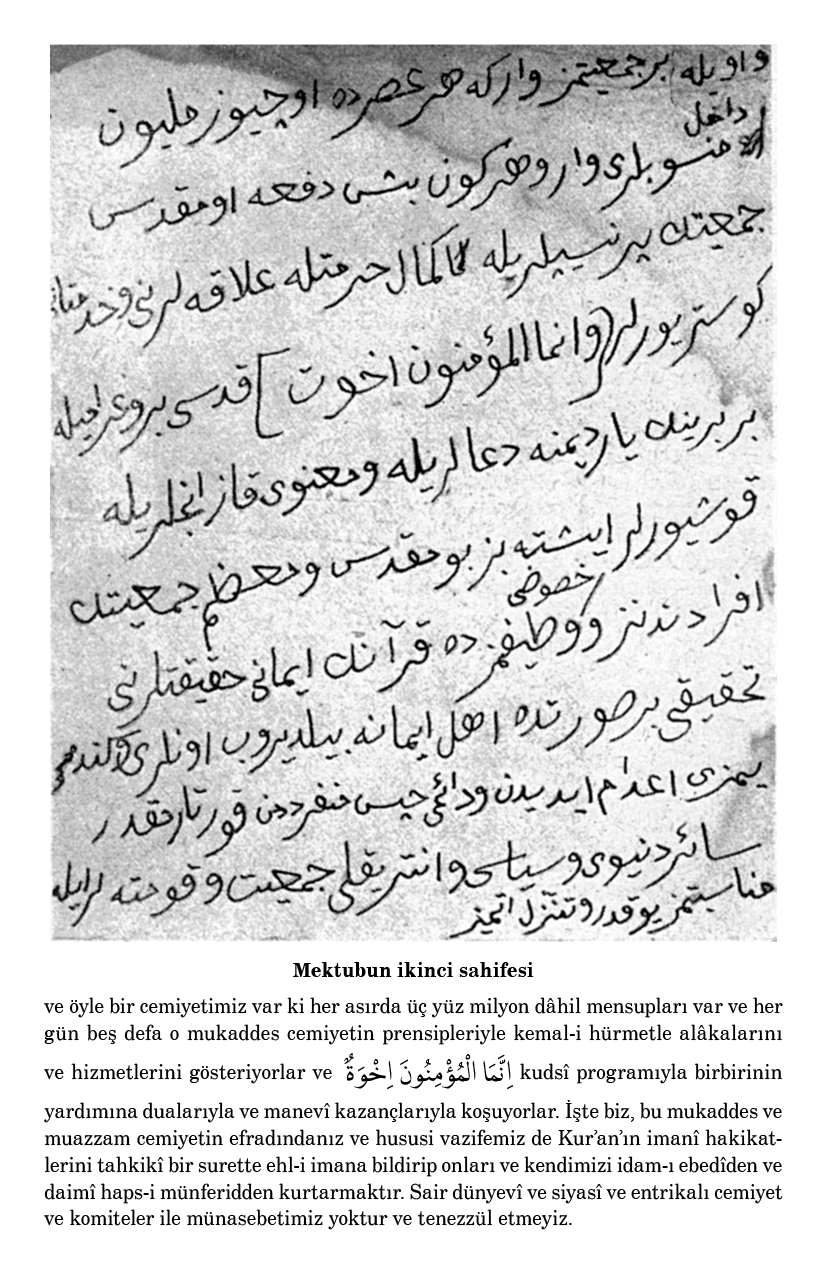 و اويله بر جمعيتمز وار كه هر عصرده اوچيوز مليون
داخل
منسوبلرى وار و هر كون بش دفعه او مقدس
جمعيتك پرنسيپلريله كمال حرمتله علاقه لرنى و
كوستريورلر (و انما المؤمنون اخوت] قدسى پروغراميله
بربرينك يارديمنه دعالريله و معنوى قازانجلريله
قوشيورلر ايشته بز بو مقدس و معظم جمعيتك
خصوصى
افرادندنز و وظيفمز ده قرآنك ايمانى حقيقتلرنى
تحقيقى بر صورتده اهل ايمانه بيلديروب اونلرى و كندى
يمزى اعدام ابديدن و دائمى حبس منفرددن قورتارمقدر
سائر دنيوى و سياسى و انتريقلى جمعيت و قوميته لر ايله
مناسبتمز يوقدر و تنزل اتميز
Mektubun ikinci sahifesi
ve öyle bir cemiyetimiz var ki her asırda üç yüz milyon dâhil mensupları var ve her
gün beş defa o mukaddes cemiyetin prensipleriyle kemal-i hürmetle alâkalarını
ve hizmetlerini gösteriyorlar ve اِنَّمَا الْمُؤْمِنُونَ اِخْوَةٌ kudsî programıyla birbirinin
yardımına dualarıyla ve manevî kazançlarıyla koşuyorlar. İşte biz, bu mukaddes ve
muazzam cemiyetin efradındanız ve hususi vazifemiz de Kur’an’ın imanî hakikat-
lerini tahkikî bir surette ehl-i imana bildirip onları ve kendimizi idam-ı ebedîden ve
daimî haps-i münferidden kurtarmaktır. Sair dünyevî ve siyasî ve entrikalı cemiyet
ve komiteler ile münasebetimiz yoktur ve tenezzül etmeyiz.